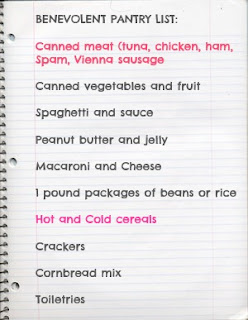 BENEVOLENT PANTRY LIST:
Canned meat (tuna, chicken, ham,
Spam, Vienna sausage
Canned vegetables and fruit
Spaghetti and sauce
Peanut butter and jelly
Macaroni and Cheese
1 pound packages of beans or rice
Hot and Cold cereals
Crackers
Cornbread mix
Toiletries